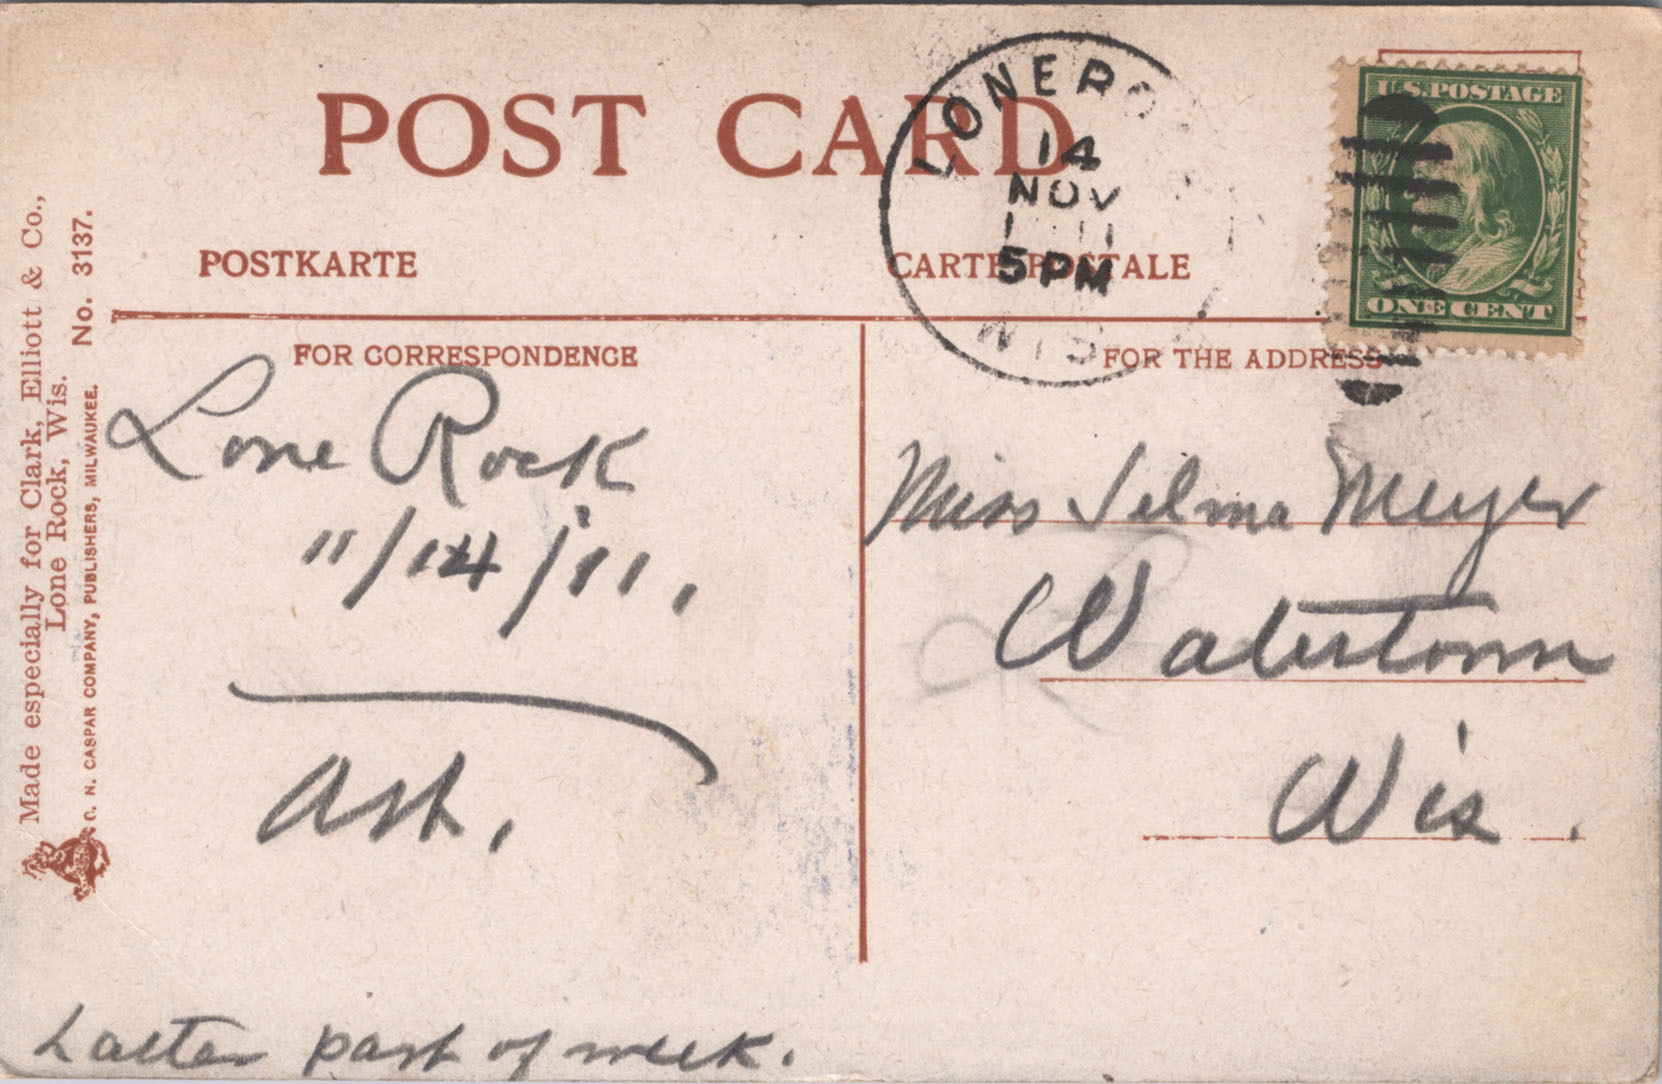 POST CARD
POSTKARTE
CARTE POSTALE
FOR CORRESPONDENCE
FOR THE ADDRESS
Made especially for Clark, Elliott & Co.,
Lone Rock, Wis. No. 3137.
C. N. CASPAR COMPANY, PUBLISHERS, MILWAUKEE.
LONE RO
14
NOV
1911
5 PM
WIS
U.S. POSTAGE
ONE CENT
Lone Rock
11/14/'11.
Ash.
Latter part of week.
Miss Selma Meyer
Watertown
Wis.